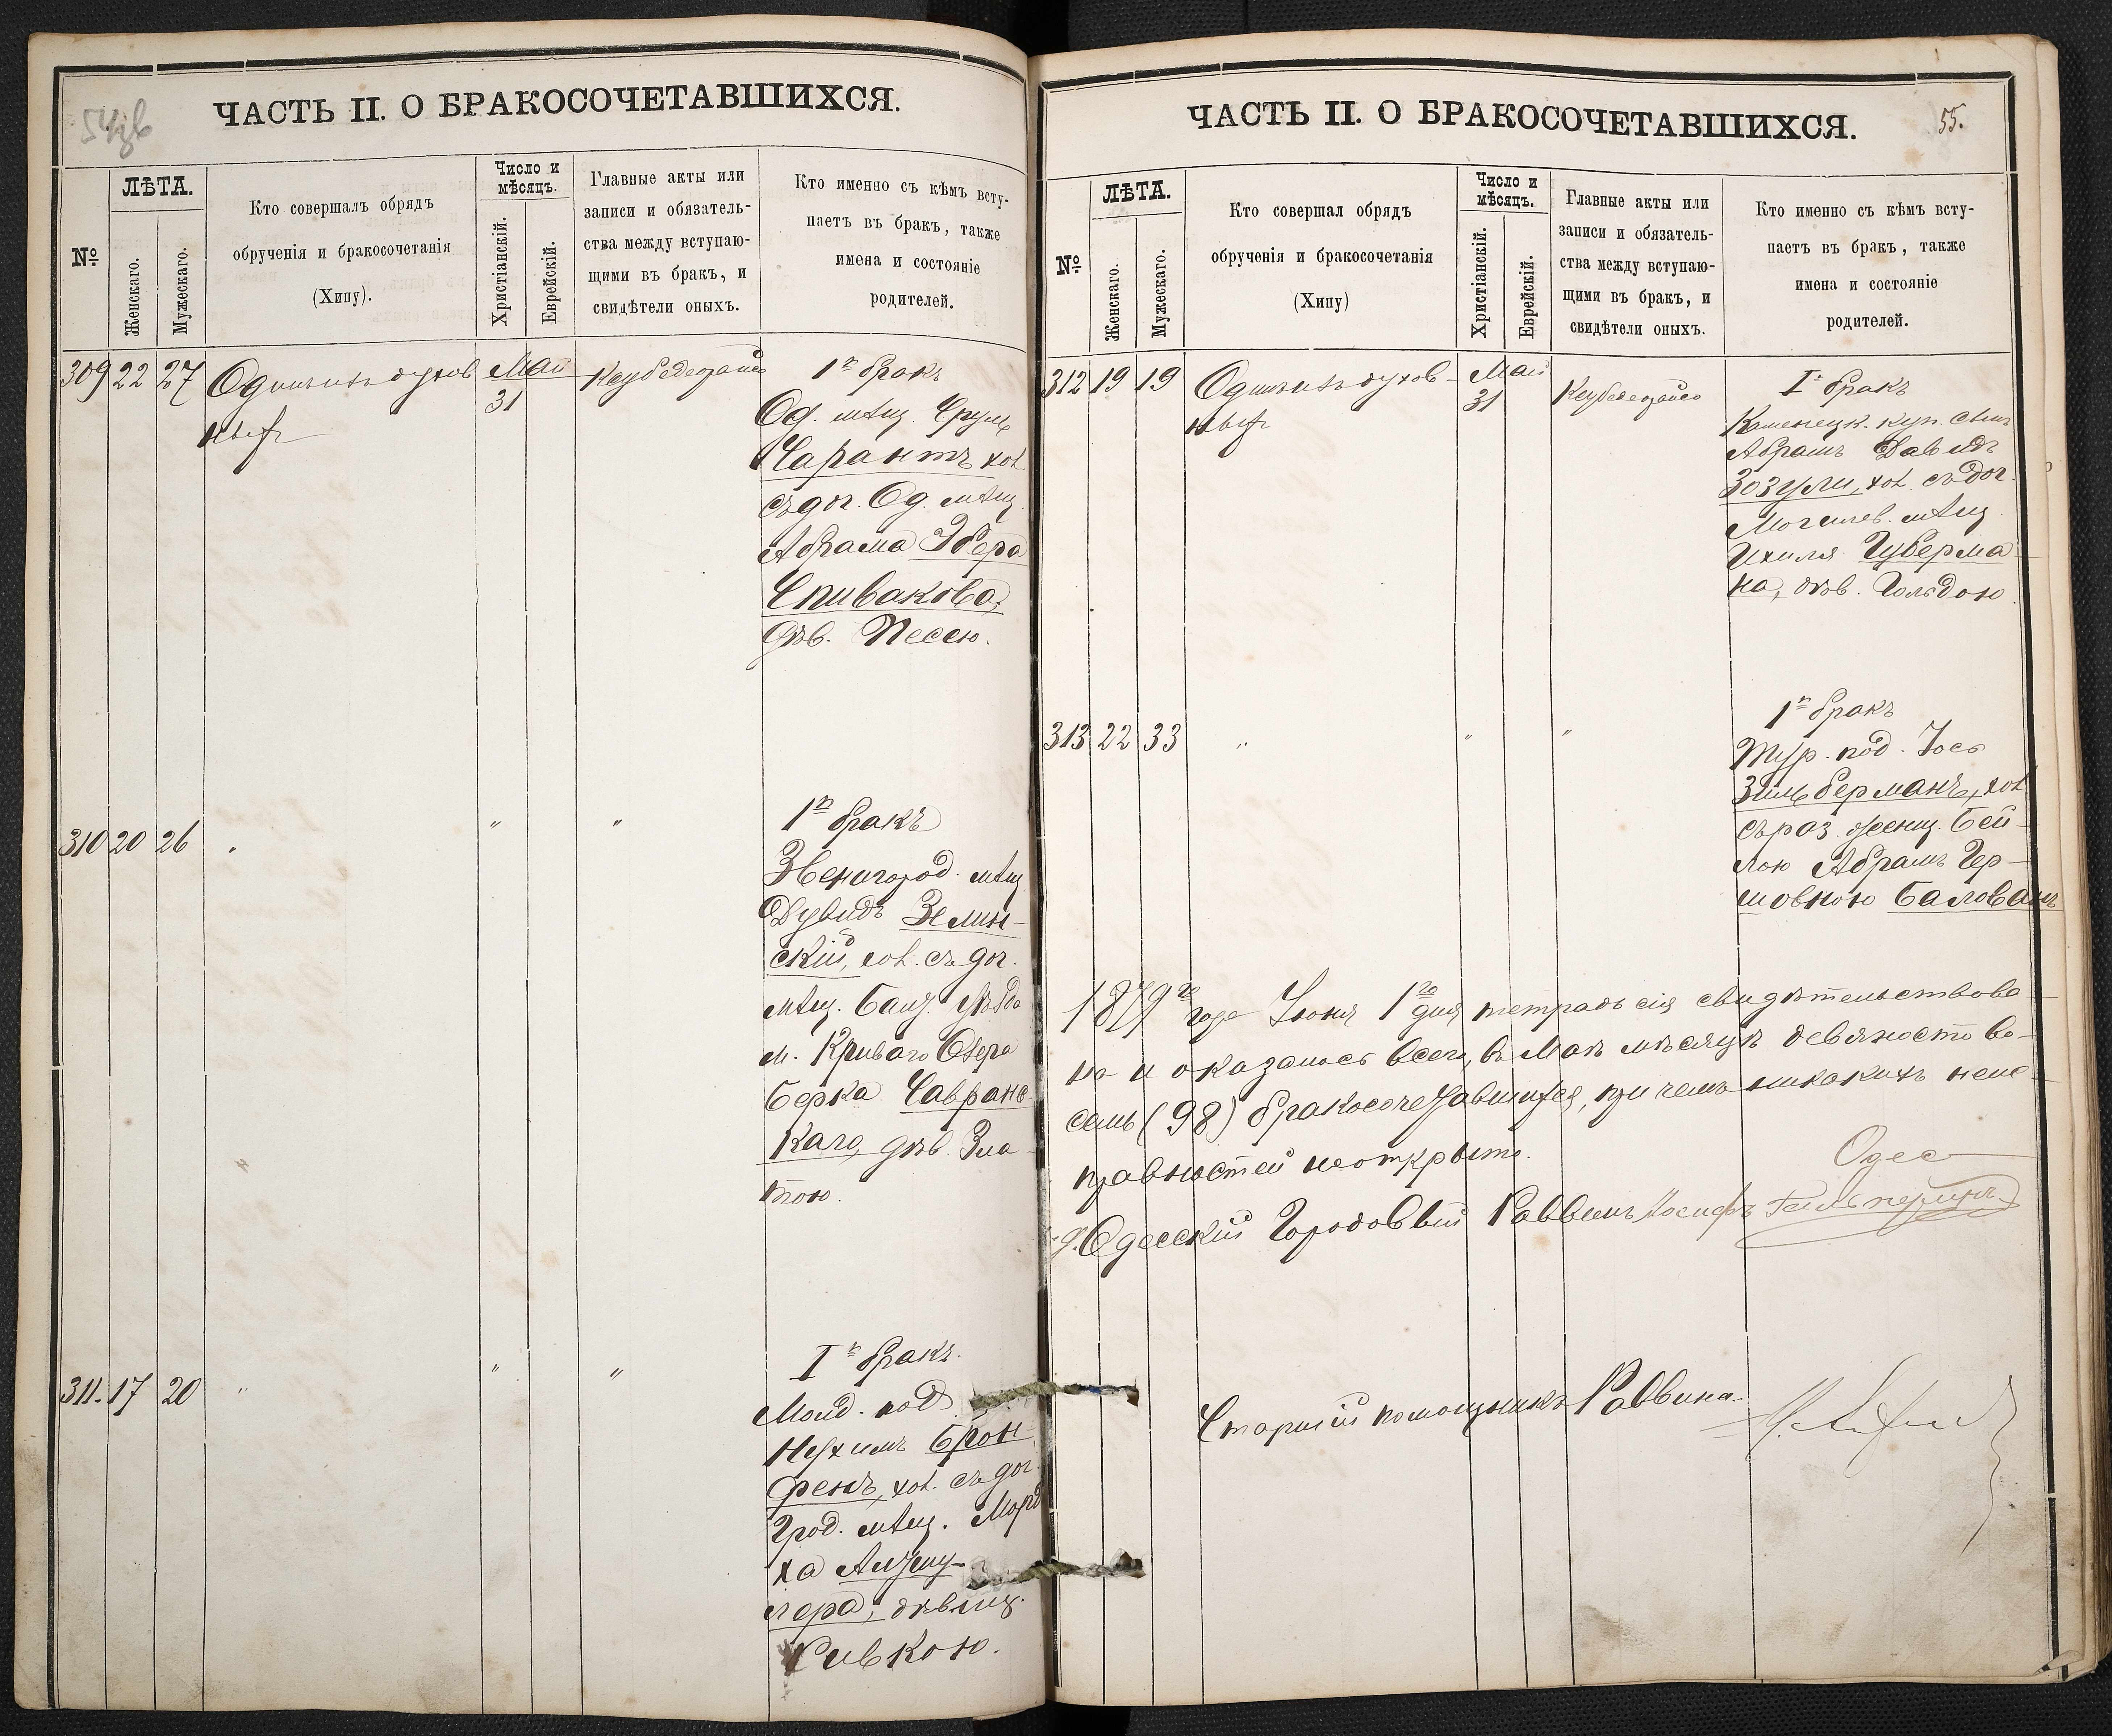 ЧАСТЬ II. О БРАКОСОЧЕТАВШИХСЯ.
№
ЛѢТА.
Женскаго.
Мужескаго.
Кто совершалъ обрядъ
обрученія и бракосочетанія
(Хипу).
Число и
мѣсяцъ.
Христіанскій.
Еврейскій.
Главные акты или
записи и обязатель-
ства между вступаю-
щими въ бракъ, и
свидѣтели оныхъ.
Кто именно съ кѣмъ всту-
паетъ въ бракъ, также
имена и состояніе
родителей.
309 22 27
Май
31
1й бракъ
Од. мѣщ. Сруль
Сарантъ, хол.
съ доч. Од. мѣщ.
Абрама Збера
Спивакова,
дѣв. Песею.
310 20 26 " " "
1й бракъ
Звенигород. мѣщ.
Дувидъ Землин-
скій, хол. съ доч.
мѣщ.
м. Криваго Озера
Берка Савранс-
каго, дѣв. Зла-
тою.
311. 17 20 " " "
1й бракъ.
под.
Нухимъ Брон-
фенъ, хол. съ доч.
мѣщ. Морд
ха
лера, дѣвиц.
Ривкою.
ЧАСТЬ II. О БРАКОСОЧЕТАВШИХСЯ.
55.
№
ЛѢТА.
Женскаго.
Мужескаго.
Кто совершал обрядъ
обрученія и бракосочетанія
(Хипу)
Число и
мѣсяцъ.
Христіанскій.
Еврейскій.
Главные акты или
записи и обязатель-
ства между вступаю-
щими въ бракъ, и
свидѣтели оныхъ.
Кто именно съ кѣмъ всту-
паетъ въ бракъ, также
имена и состояніе
родителей.
312 19 19
Май
31
1й бракъ
Каменецк. куп. сынъ
Абрамъ Давидъ
Зозули, хол. съ доч.
Могилев. мѣщ.
Ихиля Губерма-
на, дѣв. Гольдою.
313 22 33 " " "
1й бракъ
Тур. под. Іось
Зильберманъ, хол.
съ раз. женщ. Бей-
лою Абрамъ Гер-
шовною Балованъ
1879го года Іюня 1го дня тетрадь сія свидѣтельствова-
на и оказалось всего, въ Маѣ мѣсяцѣ девяносто во-
семь (98) бракосочетавшихся, при чемъ никакихъ неис-
правностей не открыто.
Одес
Одесскій Городовый Раввинъ Іосифъ Гальперинъ
Старшій помощникъ Раввина